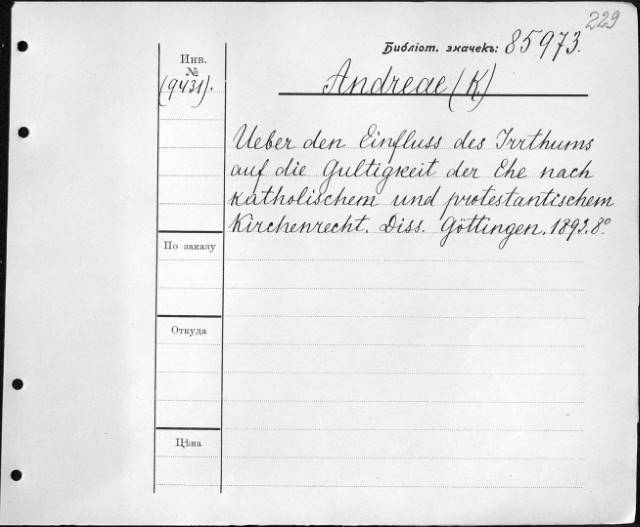 229
Библіот. значекъ: 85973.
Инв.
№
(9431).
Andreae (K.)
Ueber den Einfluss des Irrthums
auf die Gultigkeit der Ehe nach
katholischem und protestantischem
Kirchenrecht. Diss. Göttingen. 1893. 8º
По заказу
Откуда
Цѣна